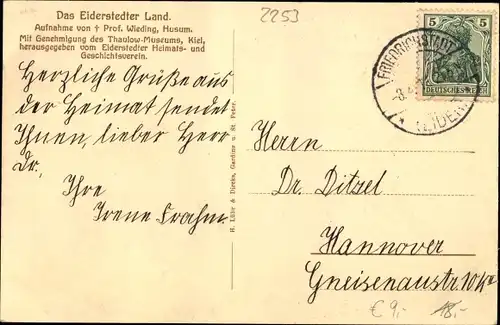 Das Eiderstedter Land.
Aufnahme von † Prof. Wieding, Husum.
Mit Genehmigung des Thaulow-Museums, Kiel,
herausgegeben vom Eiderstedter Heimats- und
Geschichtsverein.
2253
5 5
DEUTSCHES REICH
FRIEDRICHSTADT
(EIDER)
Herzliche Grüße aus
der Heimat sendet
Ihnen, lieber Herr
Dr.,
Ihre
Irene Frahm.
H. Lühr & Dircks, Garding u. St. Peter.
Herrn
Dr. Ditzel
Hannover
Gneisenaustr. 10
€ 9,- 18,-